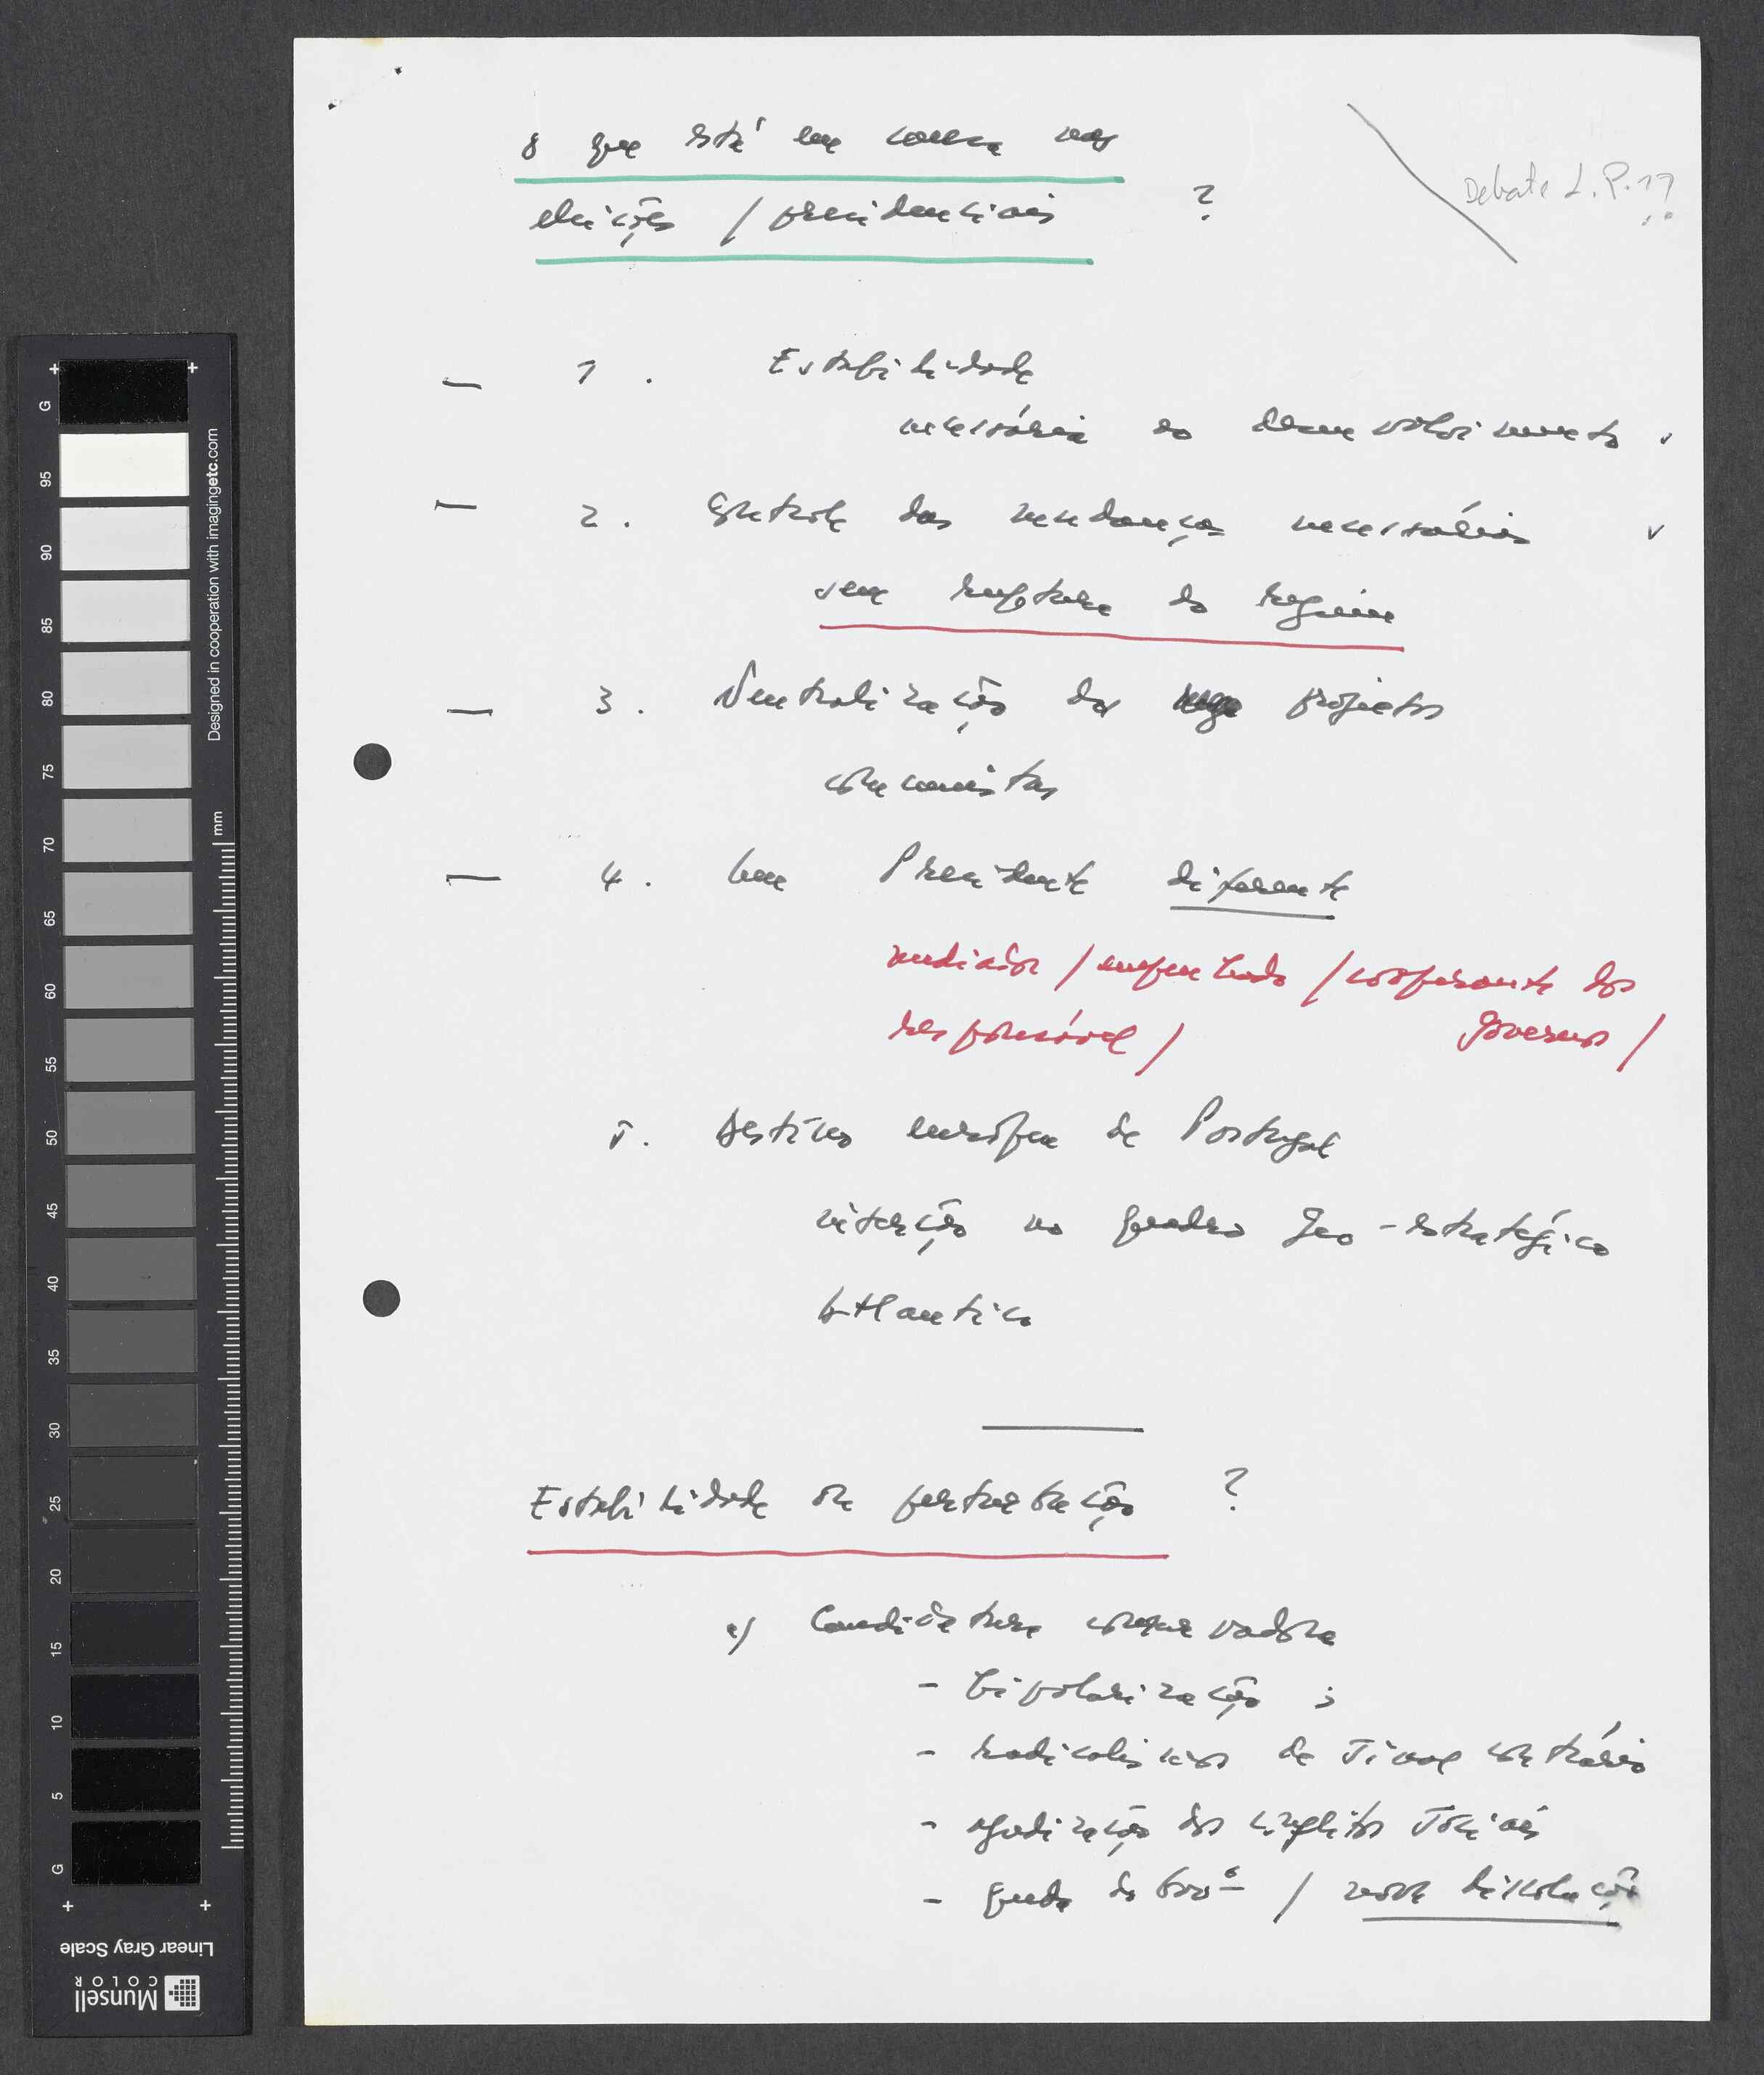 Debate L.P.??
O que está em causa nas
eleições / presidenciais ?
— 1. Estabilidade
necessária ao desenvolvimento v
— 2. Controle das mudanças necessárias v
sem ruptura do regime
— 3. Neutralização dos projectos
comunistas
— 4. Um Presidente diferente
mediador / empenhado / cooperante dos
responsável / governos /
5. Destino europeu de Portugal
inserção no quadro geo-estratégico
Atlantico
Estabilidade ou perturbação ?
a) Candidatura conservadora
- bipolarização ;
- radicalismos de sinal contrário
- agudização dos conflitos sociais
- queda do Govº / nova dissolução
G 95 90 85 80 75 70 65 60 55 50 45 40 35 30 25 20 15 10 5 G
mm
Designed in cooperation with imagingetc.com
Linear Gray Scale
Munsell
COLOR